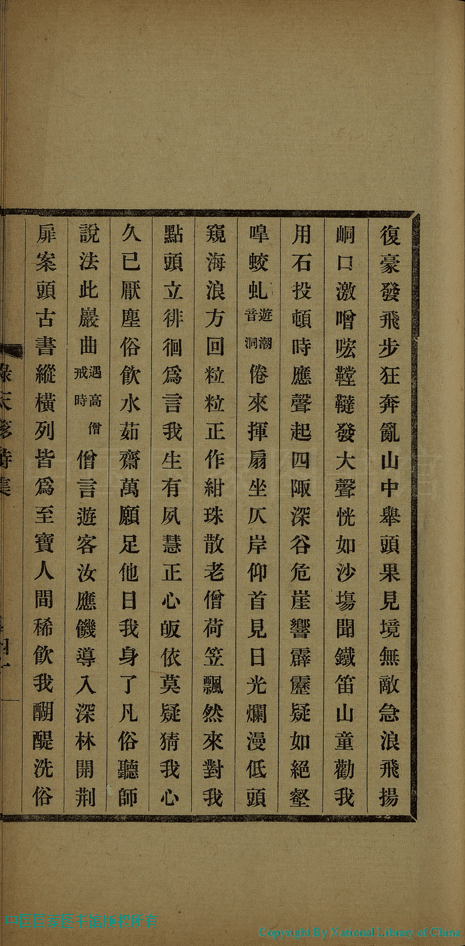 復豪發飛步狂奔亂山中舉頭果見境無敵急浪飛揚
峒口激噌吰鞺鞳發大聲恍如沙場聞鐵笛山童勸我
用石投頓時應聲起四陬深谷危崖響霹靂疑如絕壑
嘷蛟虬遊潮音洞倦來揮扇坐仄岸仰首見日光爛漫低頭
窺海浪方回粒粒正作紺珠散老僧荷笠飄然來對我
點頭立徘徊爲言我生有夙慧正心皈依莫疑猜我心
久已厭塵俗飲水茹齋萬願足他日我身了凡俗聽師
說法此巖曲遇高僧戒時僧言遊客汝應饑導入深林開荆
扉案頭古書縱橫列皆爲至寶人間稀飲我醐醍洗俗
Copyright By National Library of China